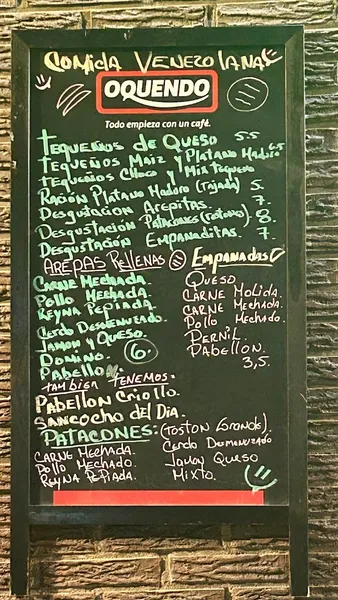 Comida Venezolana
OQUENDO
Todo empieza con un café.
Tequeños de Queso 5.5
Tequeños Maiz y Platano Maduro 6.5
Tequeños Choco y Mix Tequeño
Ración Platano Maduro (Tajada) 5.
Desgutacion Arepitas. 7.
Desgustación Patacones (Tostones) 8.
Desgustación Empanaditas. 7.
Arepas Rellenas
Carne Mechada.
Pollo Mechada.
Reyna Pepiada.
Cerdo Desmenuzado.
Jamon y Queso.
Domino. 6.
Pabellon
Empanadas
Queso
Carne Molida.
Carne Mechada.
Pollo Mechado.
Pernil.
Pabellon.
3,5.
Tambien Tenemos:
Pabellon Criollo.
Sancocho del Dia.
Patacones: (Toston Grande).
Carne Mechada.
Pollo Mechado.
Reyna Pepiada.
Cerdo Desmenuzado
Jamon Queso
Mixto.